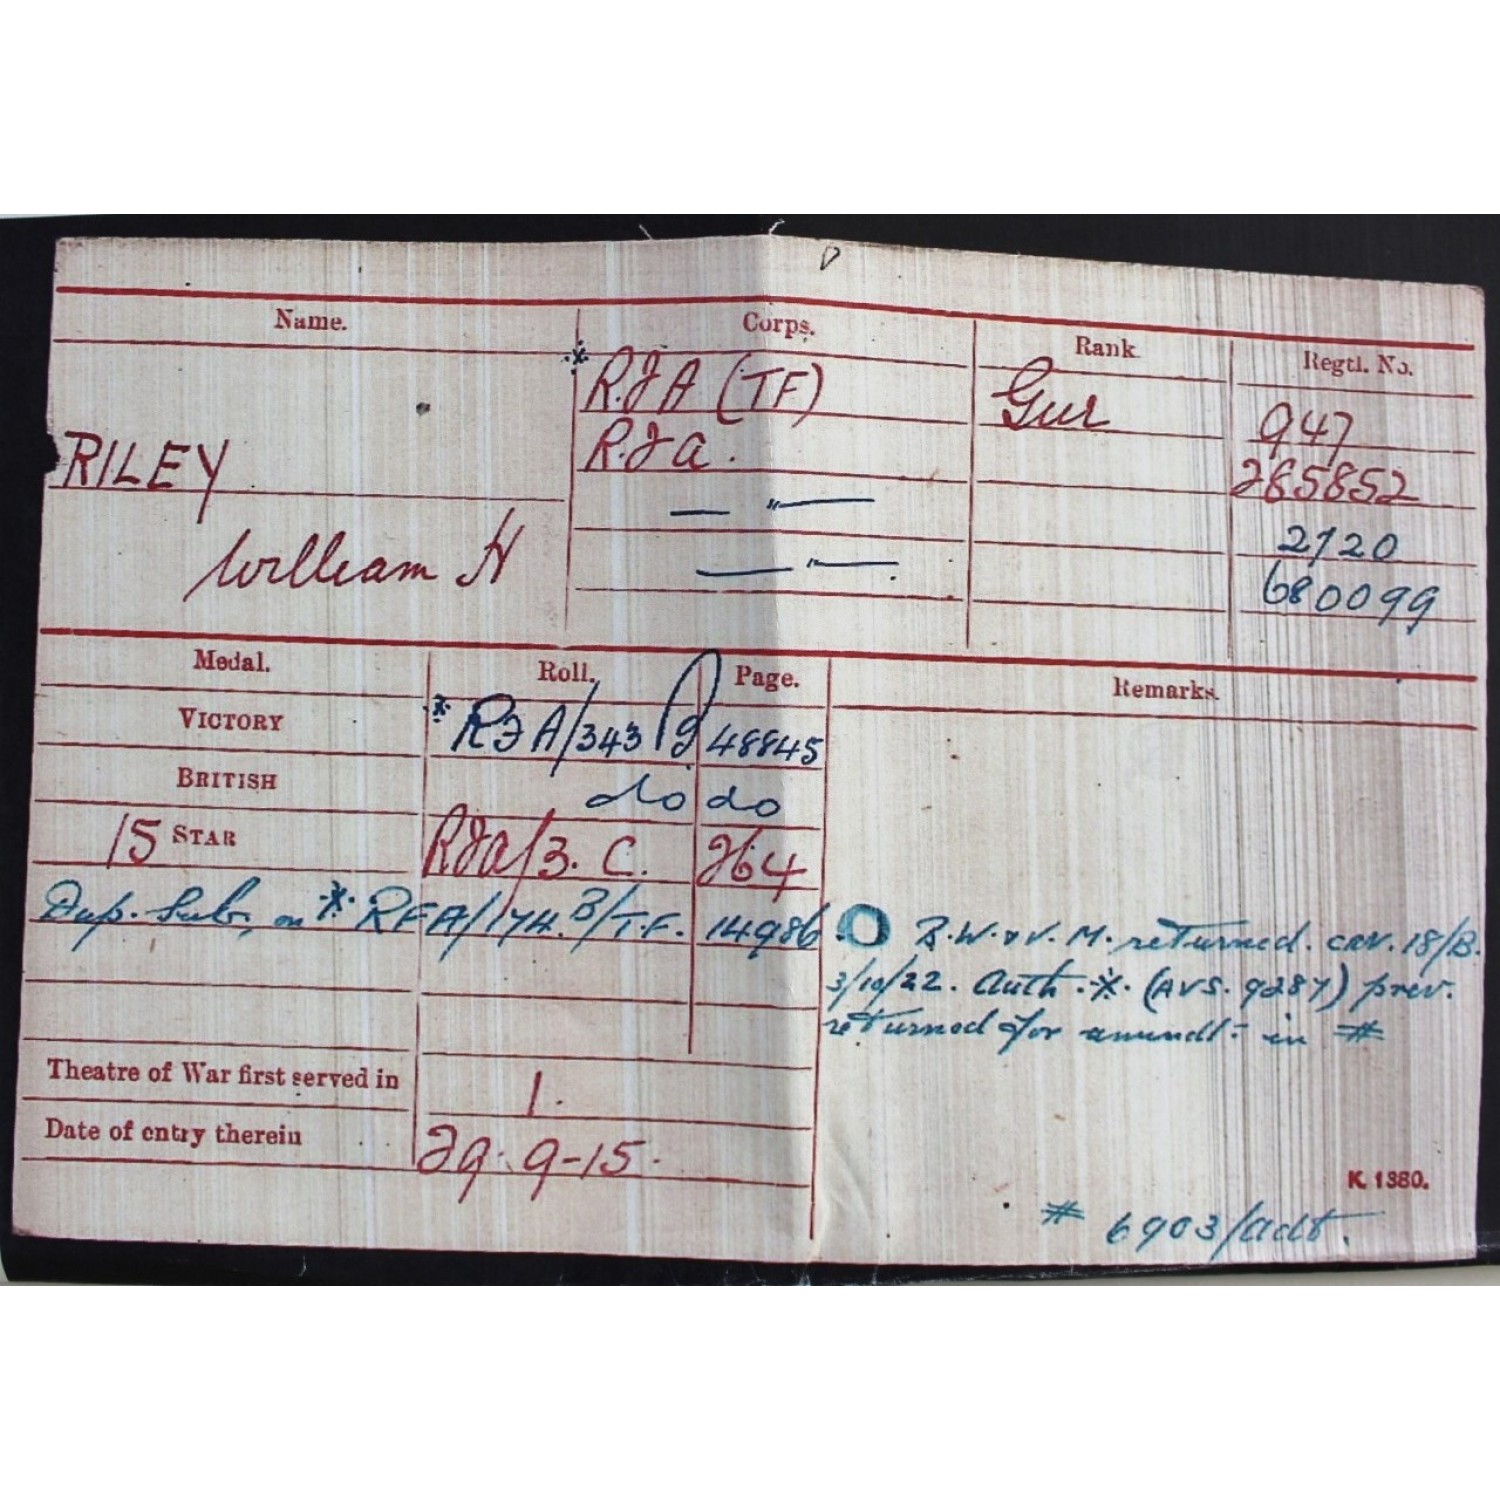 Name. Corps. Rank Regtl. No.
* R.F.A (TF) Gnr 947
RILEY R.F.a. 285852
— " — 2120
William H — " — 680099
Medal. Roll. Page. Remarks.
VICTORY * RFA/343 B 48845
BRITISH do do
15 STAR RFA/3. C. 264
Dup. Subr, on * RFA/174. B/T.F. 14986 B.W. & V. M. returned. cav. 18/B.
3/10/22. Auth. * (AVS. 9287) prev.
returned for amendt- in #
Theatre of War first served in 1.
Date of entry therein 29. 9-15.
K. 1380.
# 6903/adt.